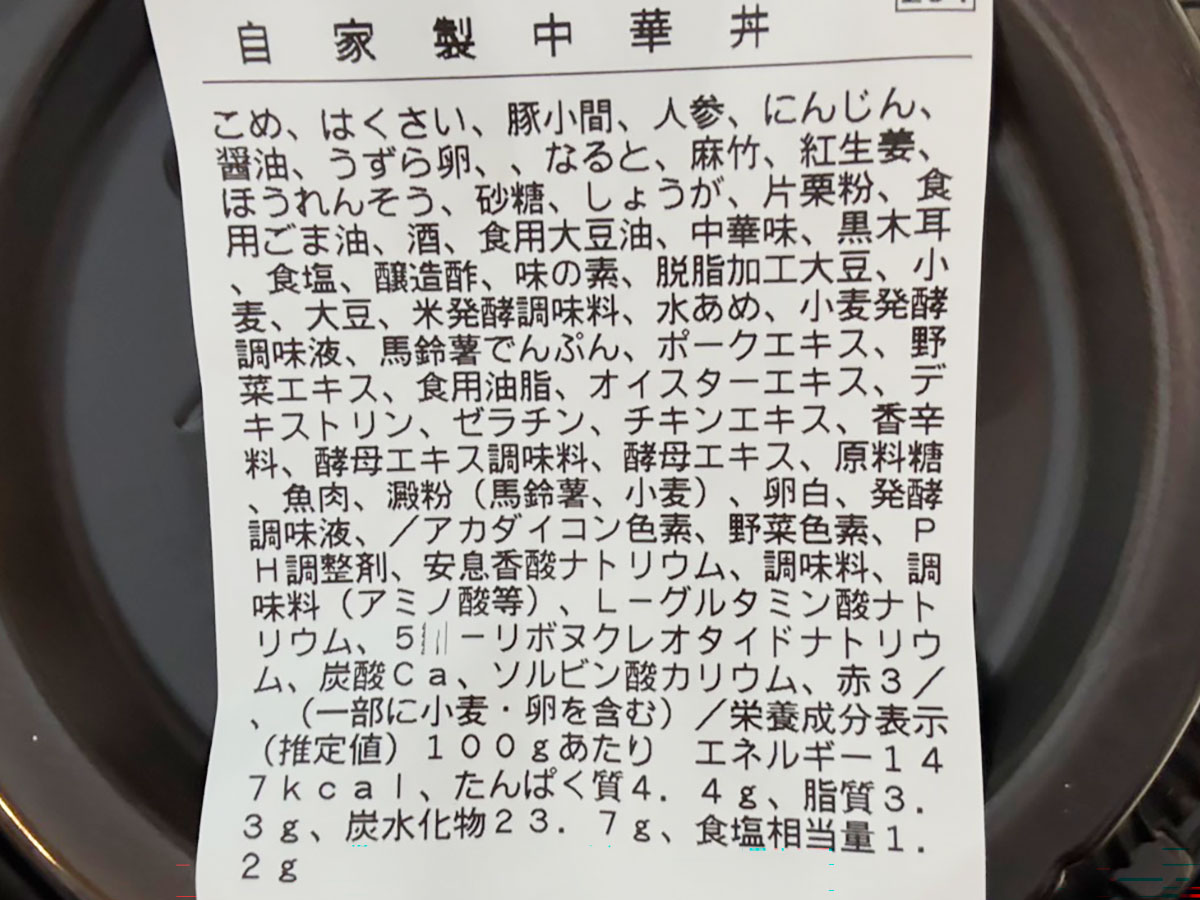 自家製中華丼
こめ、はくさい、豚小間、人参、にんじん、
醤油、うずら卵、、なると、麻竹、紅生姜、
ほうれんそう、砂糖、しょうが、片栗粉、食
用ごま油、酒、食用大豆油、中華味、黒木耳
、食塩、醸造酢、味の素、脱脂加工大豆、小
麦、大豆、米発酵調味料、水あめ、小麦発酵
調味液、馬鈴薯でんぷん、ポークエキス、野
菜エキス、食用油脂、オイスターエキス、デ
キストリン、ゼラチン、チキンエキス、香辛
料、酵母エキス調味料、酵母エキス、原料糖
、魚肉、澱粉（馬鈴薯、小麦）、卵白、発酵
調味液、／アカダイコン色素、野菜色素、Ｐ
Ｈ調整剤、安息香酸ナトリウム、調味料、調
味料（アミノ酸等）、Ｌ－グルタミン酸ナト
リウム、５－リボヌクレオタイドナトリウ
ム、炭酸Ｃａ、ソルビン酸カリウム、赤３／
、（一部に小麦・卵を含む）／栄養成分表示
（推定値）１００ｇあたり　エネルギー１４
７ｋｃａｌ、たんぱく質４．４ｇ、脂質３．
３ｇ、炭水化物２３．７ｇ、食塩相当量１．
２ｇ